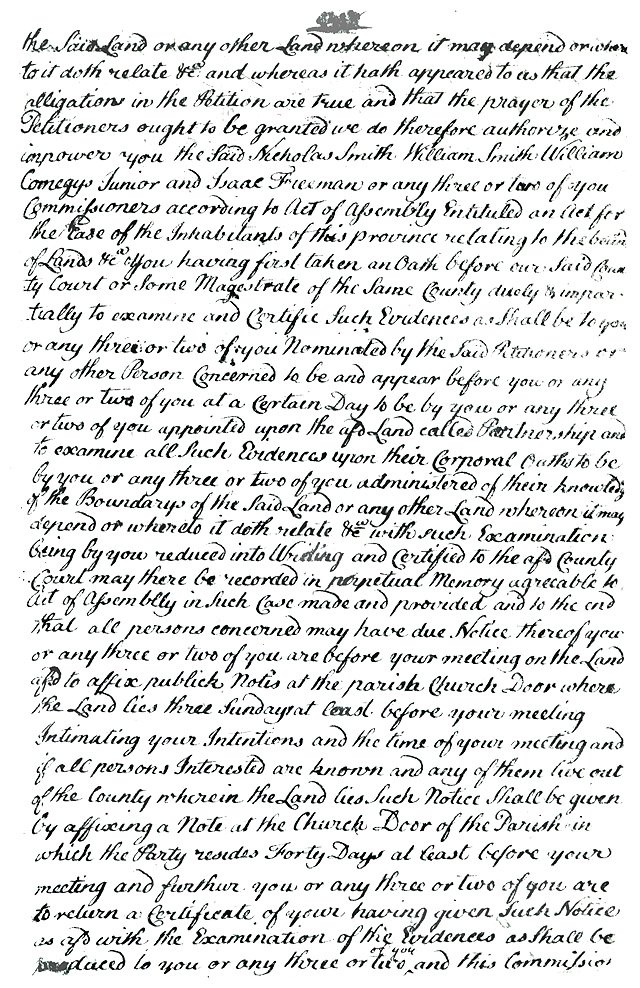 the Said Land or any other Land whereon it may depend or where
to it doth relate &ca and whereas it hath appeared to us that the
alligations in the Petition are true and that the prayer of the
Petitioners ought to be granted we do therefore authorize and
impower you the Said Nicholas Smith William Smith William
Comegys Junior and Isaac Freeman or any three or two of you
Commissioners according to Act of Assembly Entituled an Act for
the Ease of the Inhabitants of this province relating to the boun
of Lands &ca you having first taken an Oath before our Said Coun
ty Court or Some Magestrate of the Same County duely & impar-
tially to examine and Certifie Such Evidences as Shall be to you
or any three or two of you Nominated by the Said Petitioners or
any other Person Concerned to be and appear before you or any
three or two of you at a Certain Day to be by you or any three
or two of you appointed upon the afd Land called Partnership and
to examine all Such Evidences upon their Corporal Oaths to be
by you or any three or two of you administered of their knowledg
of the Boundarys of the Said Land or any other Land whereon it may
depend or whereto it doth relate &ca with such Examination
being by you reduced into Writing and Certified to the afd County
Court may there be recorded in perpetual Memory agreeable to
Act of Assemblly in Such Case made and provided and to the end
that all persons concerned may have due Notice thereof you
or any three or two of you are before your meeting on the Land
afd to affix publick Notis at the parish Church Door where
the Land lies three Sundays at least before your meeting
Intimating your Intentions and the time of your meeting and
if all persons Interested are known and any of them live out
of the County wherein the Land lies Such Notice Shall be given
by affixing a Note at the Church Door of the Parish in
which the Party resides Forty Days at least before your
meeting and furthur you or any three or two of you are
to return a Certificate of your having given Such Notice
as afd with the Examination of the Evidences as Shall be
duced to you or any three or two of you and this Commission